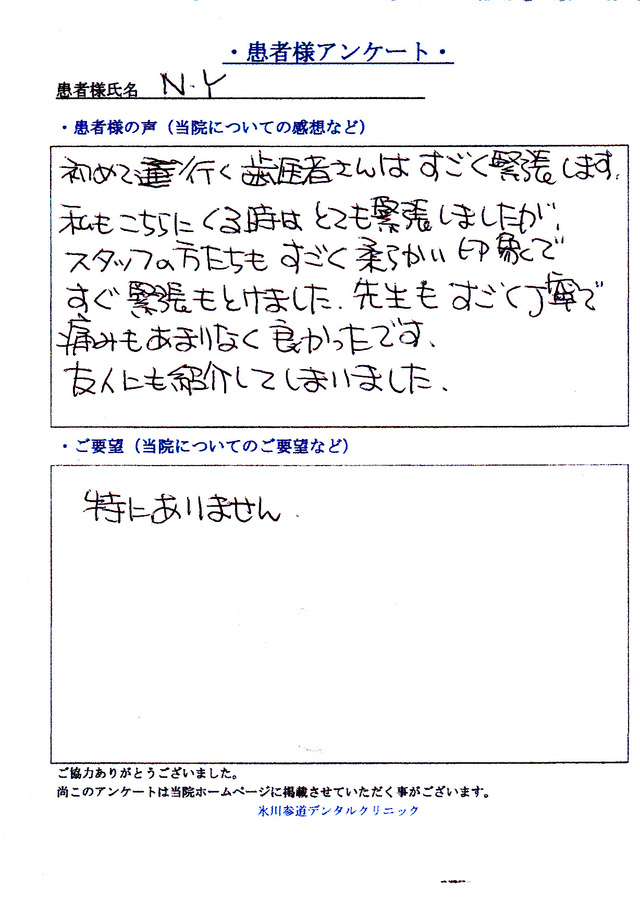 ・患者様アンケート・
患者様氏名 N.Y
・患者様の声（当院についての感想など）
初めて行く歯医者さんはすごく緊張します.
私もこちらにくる時はとても緊張しましたが、
スタッフの方たちもすごく柔らかい印象で
すぐ緊張もとけました.先生もすごく丁寧で
痛みもあまりなく良かったです.
友人にも紹介してしまいました.
・ご要望（当院についてのご要望など）
特にありません.
ご協力ありがとうございました。
尚このアンケートは当院ホームページに掲載させていただく事がございます。
氷川参道デンタルクリニック